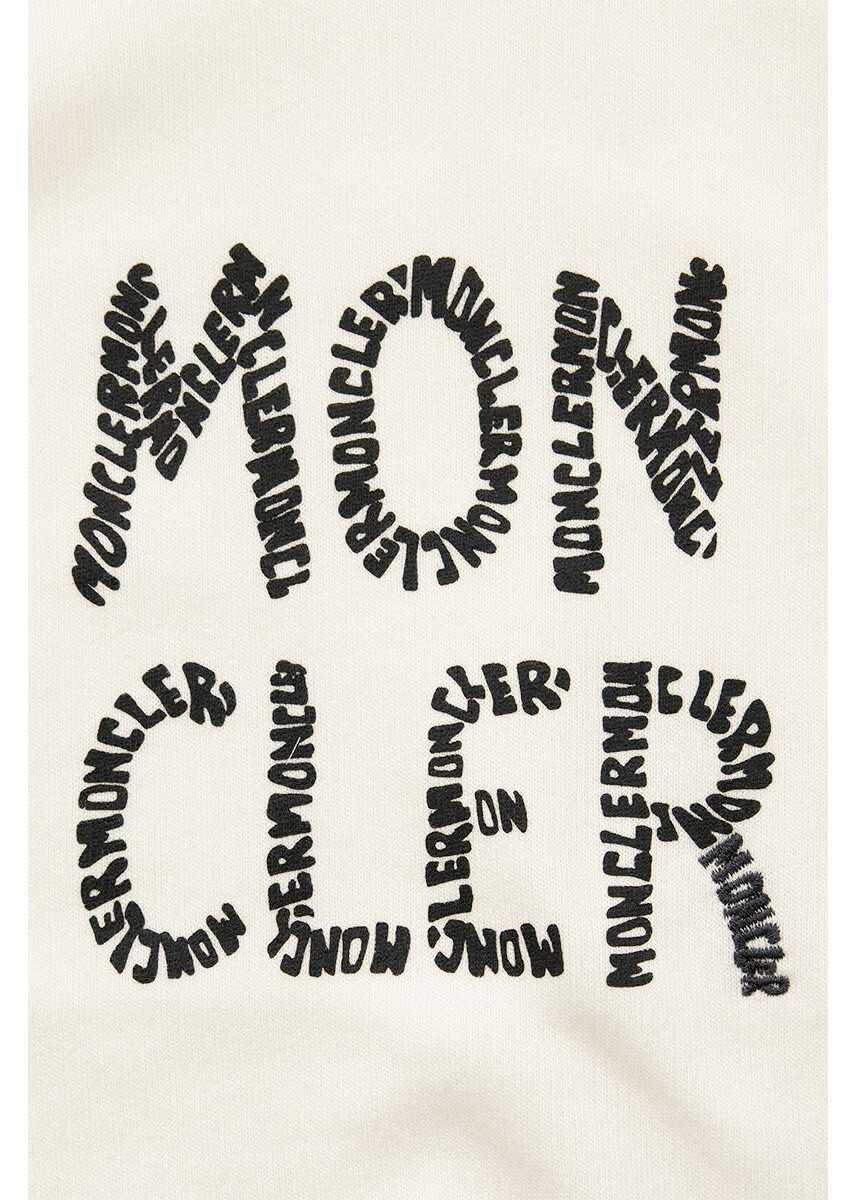 MON
CLER